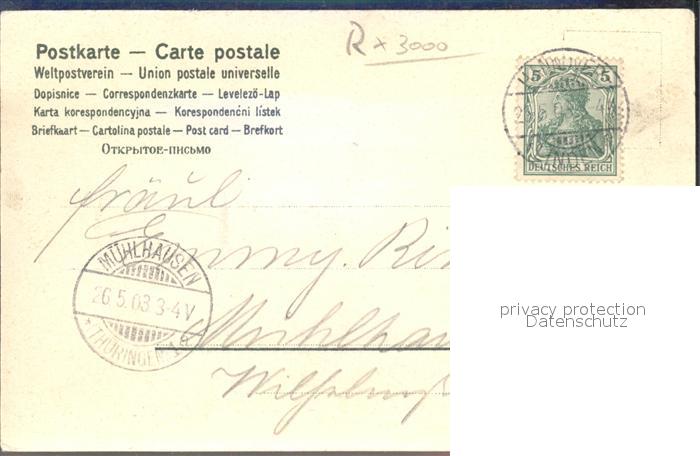 R x 3000
Postkarte — Carte postale
Weltpostverein — Union postale universelle
Dopisnice — Correspondenzkarte — Levelező-Lap
Karta korespondencyjna — Korespondenční lístek
Briefkaart — Cartolina postale — Post card — Brefkort
Открытое-письмо
5 5
DEUTSCHES REICH
Fräul
Emmy
MÜHLHAUSEN
26.5.03.3-4V
THÜRINGEN
Mühlhau
privacy protection
Datenschutz